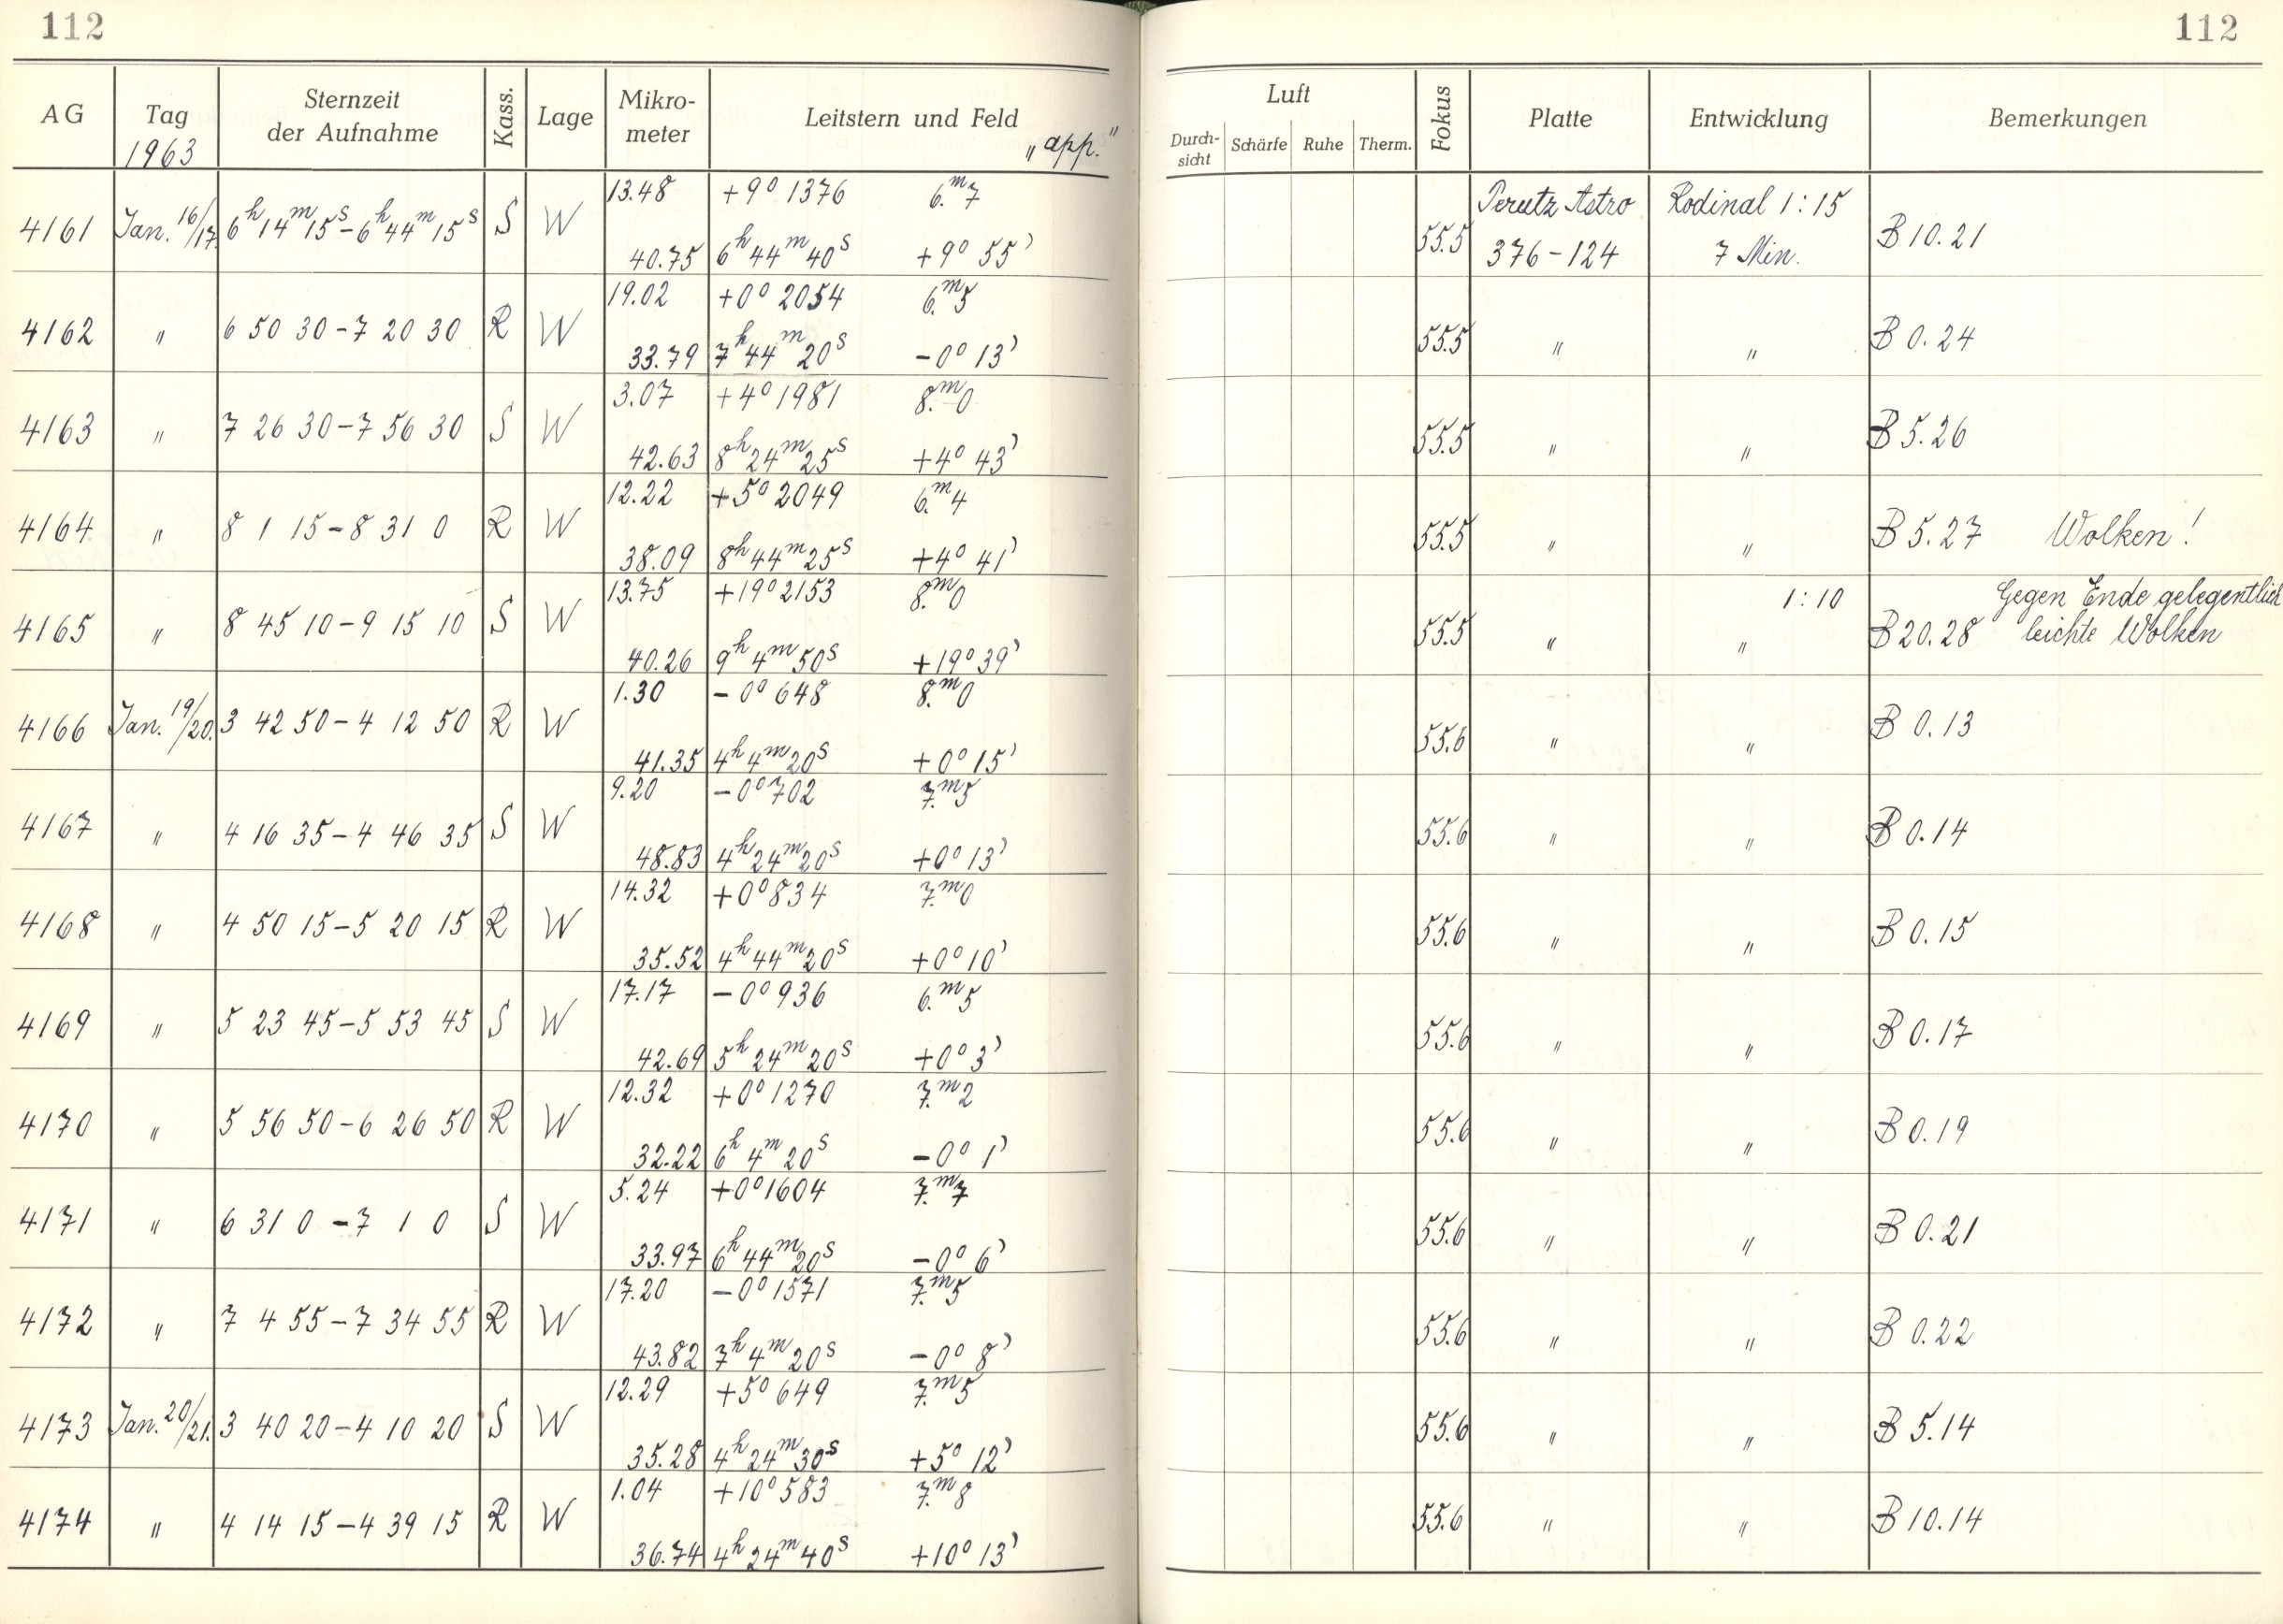 112
112
AG Tag Sternzeit der Aufnahme Kass. Lage Mikro-meter Leitstern und Feld
1963 „app."
Luft Fokus Platte Entwicklung Bemerkungen
Durch-sicht Schärfe Ruhe Therm.
13.48 +9° 1376 6.ᵐ7 Perutz Astro Rodinal 1:15
4161 Jan. 16/17. 6ʰ14ᵐ15ˢ–6ʰ44ᵐ15ˢ S W 55.5 B 10.21
40.75 6ʰ44ᵐ40ˢ +9° 55' 376–124 7 Min.
19.02 +0° 2054 6.ᵐ5
4162 " 6 50 30–7 20 30 R W 55.5 " " B 0.24
33.79 7ʰ44ᵐ20ˢ –0° 13'
3.07 +4° 1981 8.ᵐ0
4163 " 7 26 30–7 56 30 S W 55.5 " " B 5.26
42.63 8ʰ24ᵐ25ˢ +4° 43'
12.22 +5° 2049 6.ᵐ4
4164 " 8 1 15–8 31 0 R W 55.5 " " B 5.27 Wolken!
38.09 8ʰ44ᵐ25ˢ +4° 41'
13.75 +19° 2153 8.ᵐ0 1:10 Gegen Ende gelegentlich
4165 " 8 45 10–9 15 10 S W 55.5 " " B 20.28 leichte Wolken
40.26 9ʰ4ᵐ50ˢ +19° 39'
1.30 –0° 648 8.ᵐ0
4166 Jan. 19/20. 3 42 50–4 12 50 R W 55.6 " " B 0.13
41.35 4ʰ4ᵐ20ˢ +0° 15'
9.20 –0° 702 7.ᵐ5
4167 " 4 16 35–4 46 35 S W 55.6 " " B 0.14
48.83 4ʰ24ᵐ20ˢ +0° 13'
14.32 +0° 834 7.ᵐ0
4168 " 4 50 15–5 20 15 R W 55.6 " " B 0.15
35.52 4ʰ44ᵐ20ˢ +0° 10'
17.17 –0° 936 6.ᵐ5
4169 " 5 23 45–5 53 45 S W 55.6 " " B 0.17
42.69 5ʰ24ᵐ20ˢ +0° 3'
12.32 +0° 1270 7.ᵐ2
4170 " 5 56 50–6 26 50 R W 55.6 " " B 0.19
32.22 6ʰ4ᵐ20ˢ –0° 1'
5.24 +0° 1604 7.ᵐ7
4171 " 6 31 0–7 1 0 S W 55.6 " " B 0.21
33.97 6ʰ44ᵐ20ˢ –0° 6'
17.20 –0° 1571 7.ᵐ5
4172 " 7 4 55–7 34 55 R W 55.6 " " B 0.22
43.82 7ʰ4ᵐ20ˢ –0° 8'
12.29 +5° 649 7.ᵐ5
4173 Jan. 20/21. 3 40 20–4 10 20 S W 55.6 " " B 5.14
35.28 4ʰ24ᵐ30ˢ +5° 12'
1.04 +10° 583 7.ᵐ8
4174 " 4 14 15–4 39 15 R W 55.6 " " B 10.14
36.74 4ʰ24ᵐ40ˢ +10° 13'